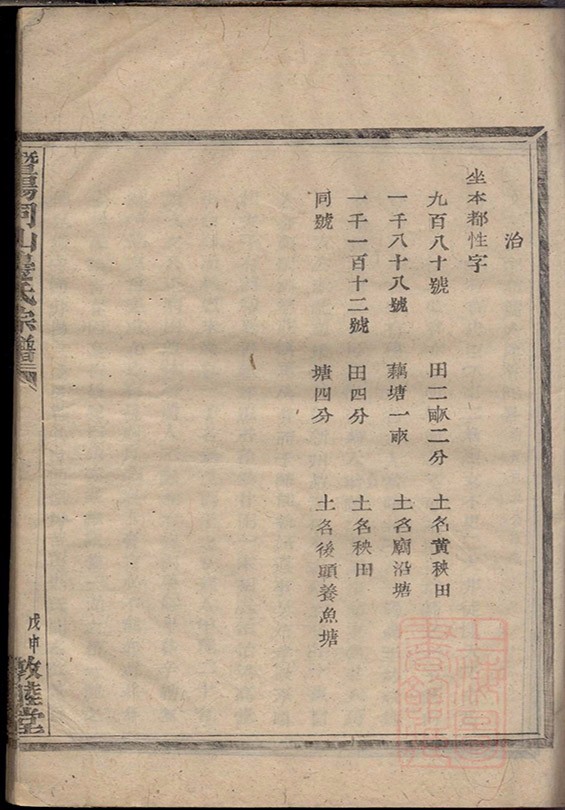 治
坐本都性字
九百八十號 田二畝二分 土名黃秧田
一千八十八號 藕塘一畝 土名廟沿塘
一千一百十二號 田四分 土名秧田
同號 塘四分 土名後頭養魚塘
暨陽同山壽氏宗譜
戊申 敦睦堂